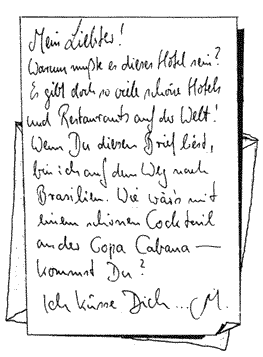 Mein Liebster!
Warum mußte es dieses Hotel sein?
Es gibt doch so viele schöne Hotels
und Restaurants auf der Welt!
Wenn Du diesen Brief liest,
bin ich auf dem Weg nach
Brasilien. Wie wär's mit
einem schönen Cocktail
an der Copa Cabana —
kommst Du?
Ich küsse Dich... M.